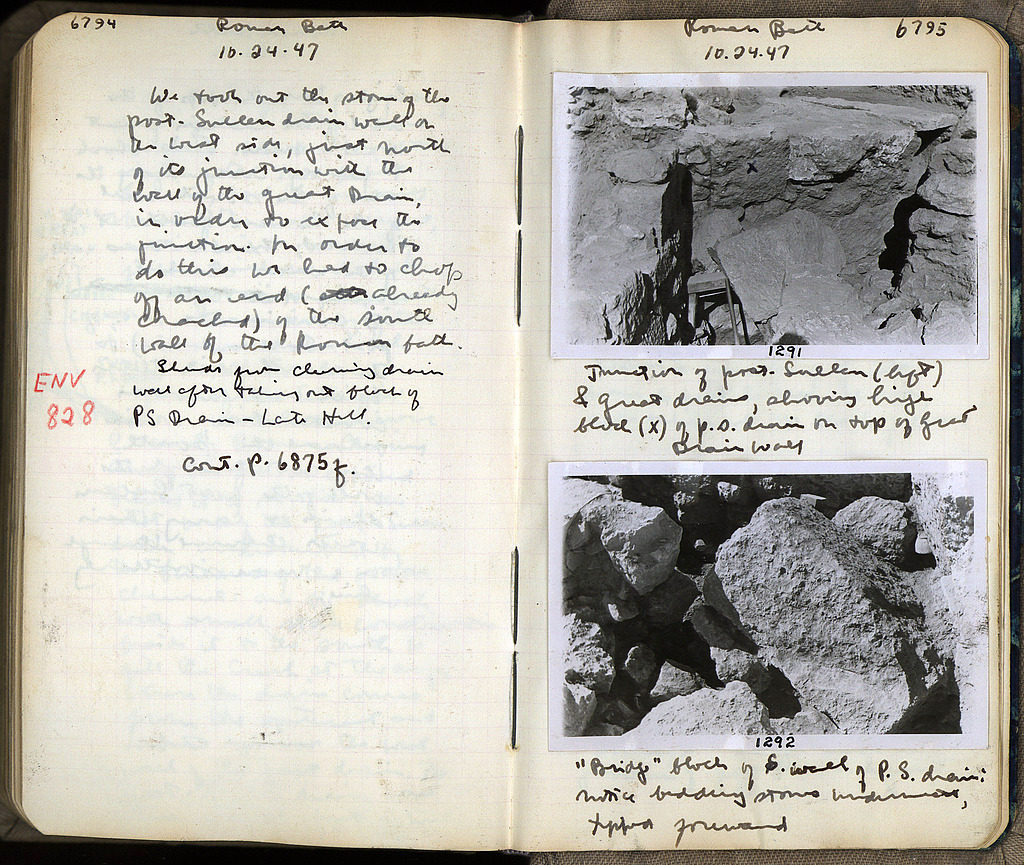 6794
Roman Bath
10.24.47
We took out the stone of the
post-Sullan drain wall on
the west side, just north
of its junction with the
wall of the great Drain,
in order to expose the
junction. In order to
do this we had to chop
off an end ( already
cracked) of the south
wall of the Roman bath.
Sherds from cleaning drain
wall after taking out block of
PS Drain – Late Hell.
ENV
828
Cont. p. 6875f.
Roman Bath
6795
10.24.47
1291
Junction of post-Sullan (left)
& great drains, showing high
block (x) of p.s. drain on top of Great
Drain wall
1292
"Bridge" block of S. wall of P.S. drain:
notice bedding stones underneath,
tipped forward